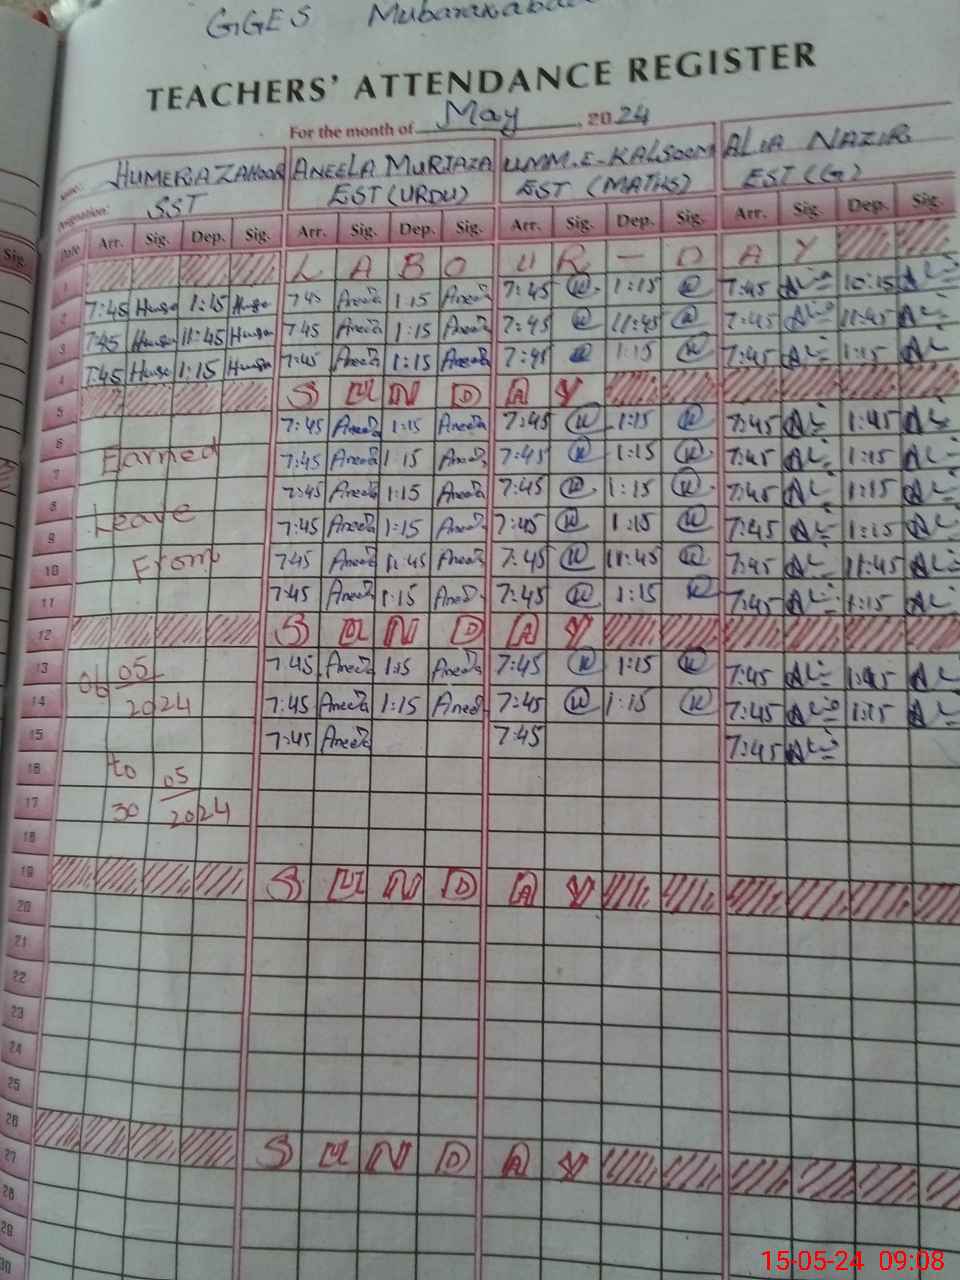 GGES Mubarakabad
TEACHERS' ATTENDANCE REGISTER
For the month of May, 2024
HUMERA ZAHOOR ANEELA MURTAZA UMM.E-KALSOOM ALIA NAZIR
Designation: SST EST (URDU) EST (MATHS) EST (G)
Date Arr. Sig. Dep. Sig. Arr. Sig. Dep. Sig. Arr. Sig. Dep. Sig. Arr. Sig. Dep. Sig.
1 L A B O U R - D A Y
2 7:45 Huma 1:15 Huma 7:45 Aneela 1:15 Aneela 7:45 1:15 7:45 10:15
3 7:45 Huma 11:45 Huma 7:45 Aneela 1:15 Aneela 7:45 11:45 7:45 11:45
4 7:45 Huma 1:15 Huma 7:45 Aneela 1:15 Aneela 7:45 1:15 7:45 1:15
5 S U N D A Y
6 7:45 Aneela 1:15 Aneela 7:45 1:15 7:45 1:45
7 Earned 7:45 Aneela 1:15 Aneela 7:45 1:15 7:45 1:15
8 7:45 Aneela 1:15 Aneela 7:45 1:15 7:45 1:15
9 Leave 7:45 Aneela 1:15 Aneela 7:45 1:15 7:45 1:15
10 From 7:45 Aneela 11:45 Aneela 7:45 11:45 7:45 11:45
11 7:45 Aneela 1:15 Aneela 7:45 1:15 7:45 1:15
12 S U N D A Y
13 06 05 7:45 Aneela 1:15 Aneela 7:45 1:15 7:45
14 2024 7:45 Aneela 1:15 Aneela 7:45 1:15 7:45 1:15
15 7:45 Aneela 7:45 7:45
16 to 05
17 30 2024
18
19 S U N D A Y
20
21
22
23
24
25
26 S U N D A Y
27
28
29
30
15-05-24 09:08